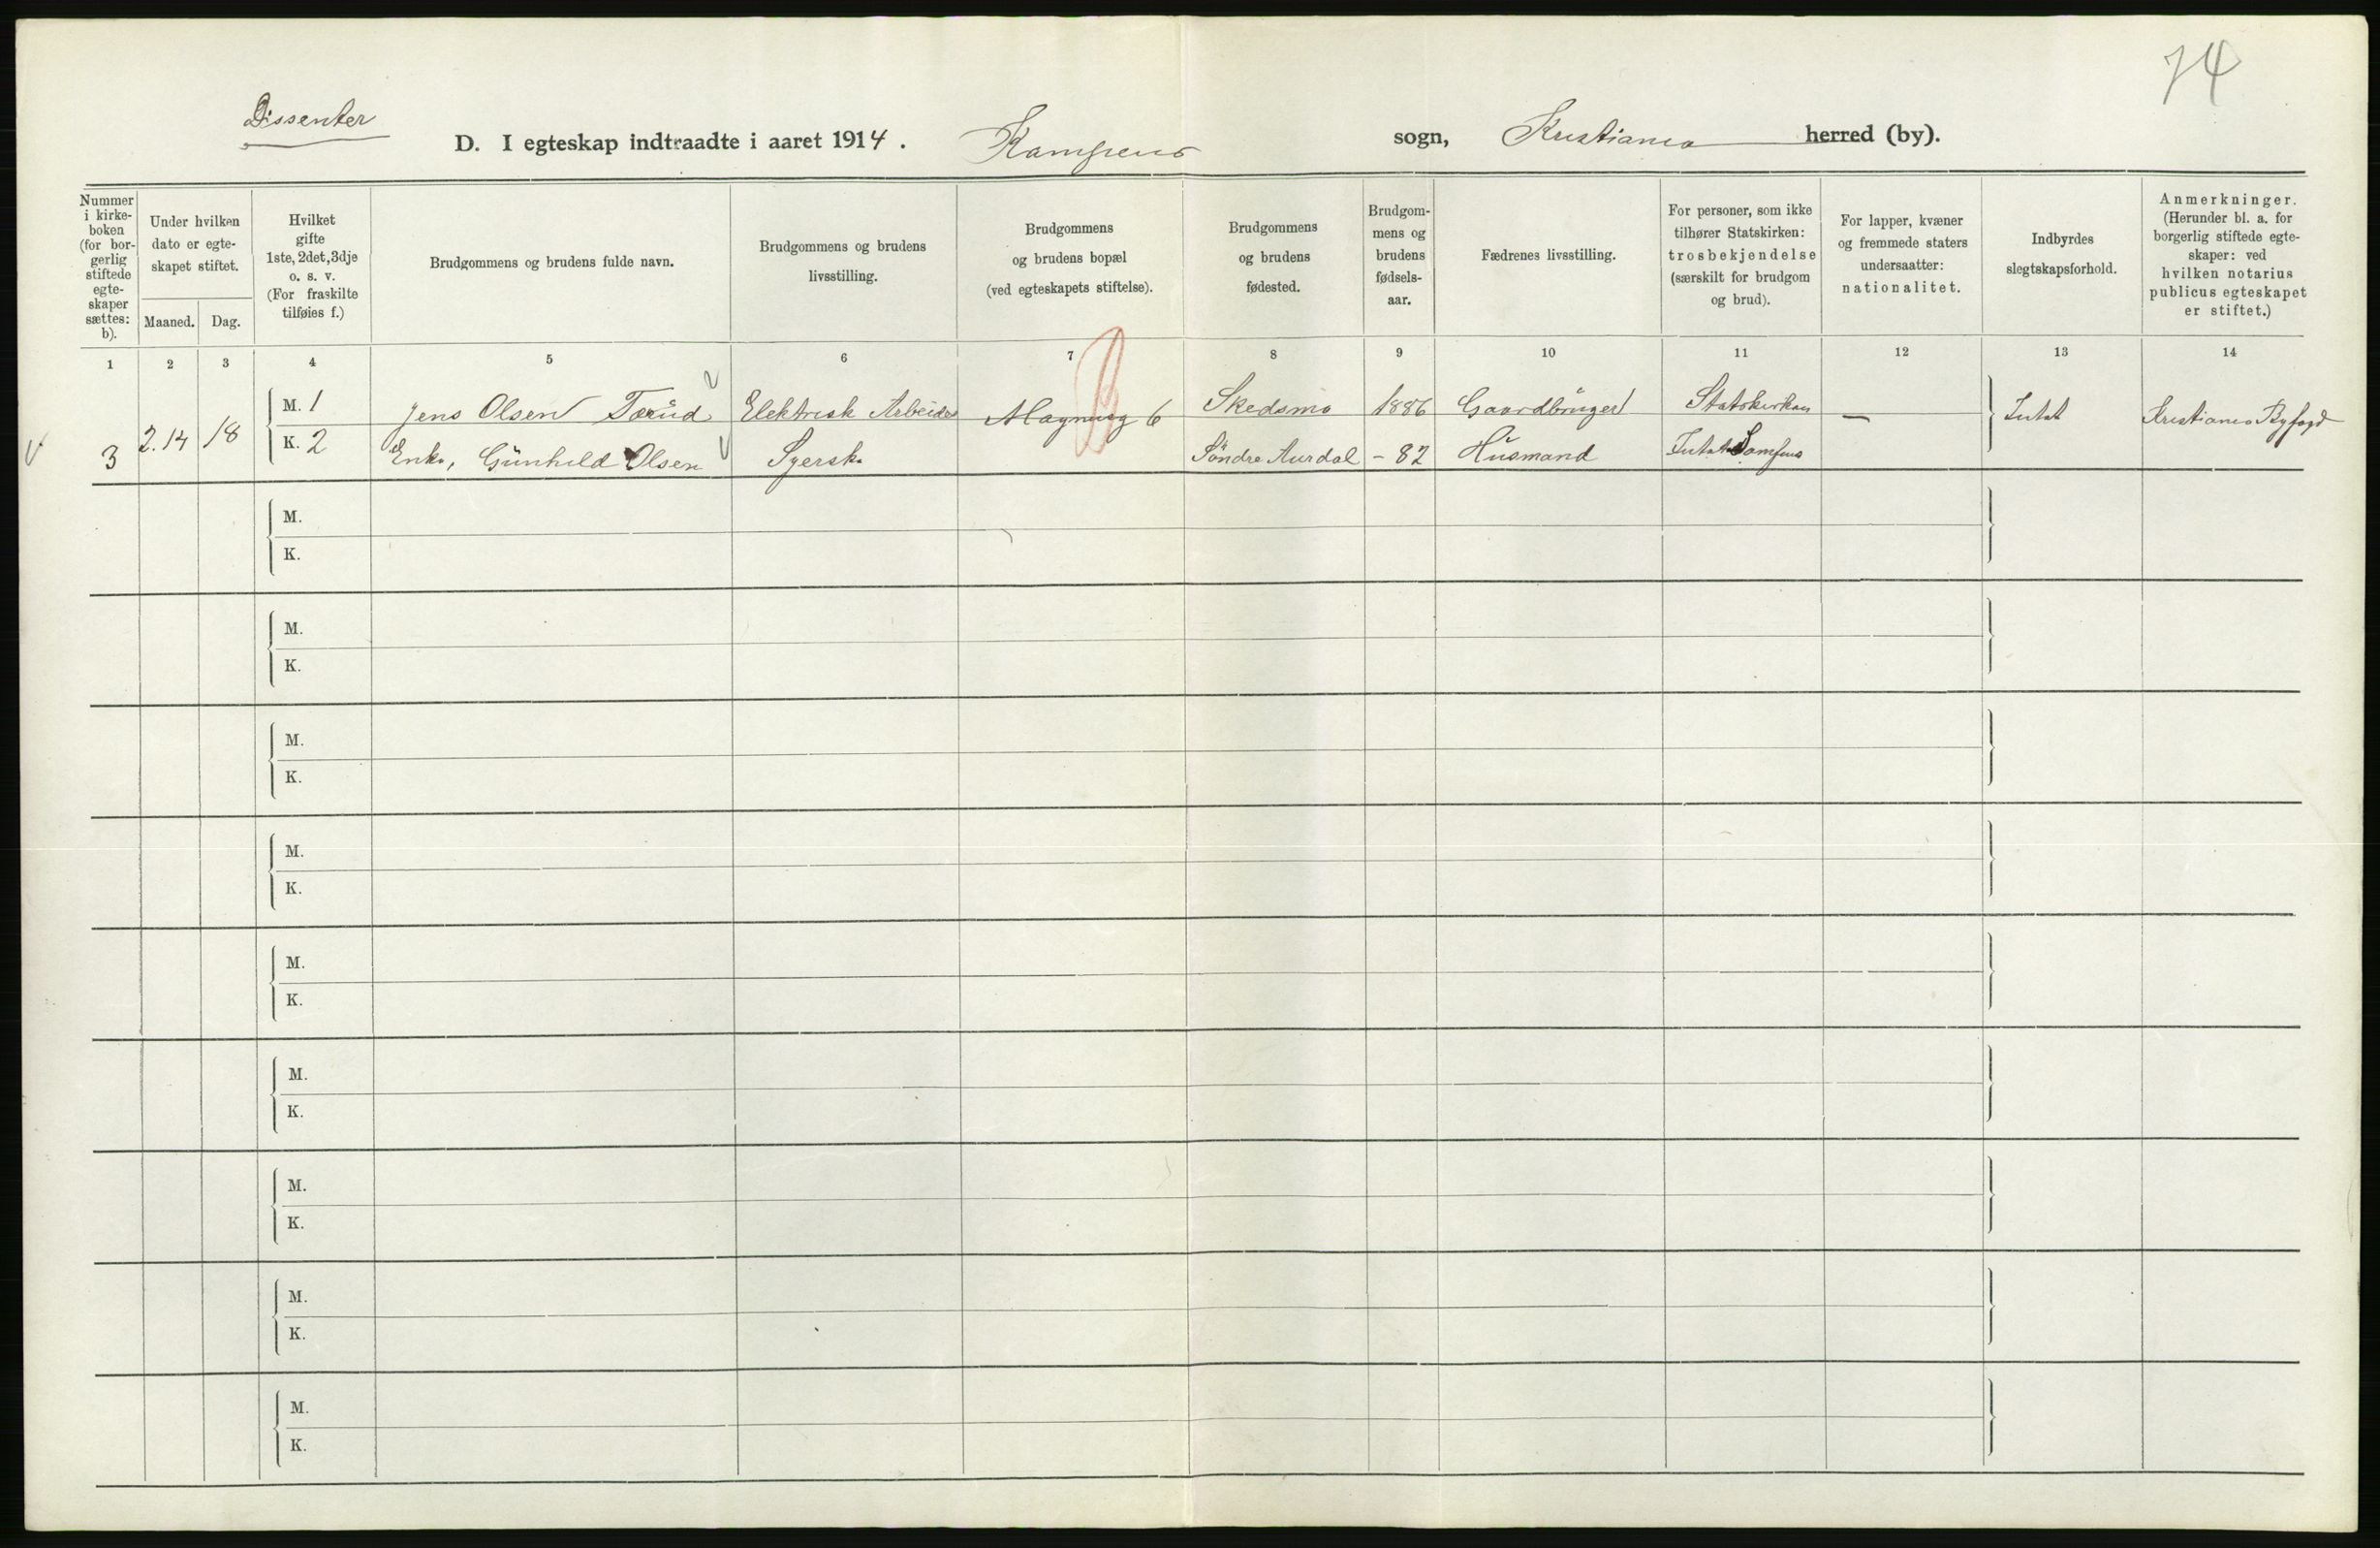 74
Dissenter
D. I egteskap indtraadte i aaret 1914. Kampens sogn, Kristiania herred (by).
Nummer i kirke-boken (for bor-gerlig stiftede egte-skaper sættes: b).
Under hvilken dato er egte-skapet stiftet.
Maaned. Dag.
Hvilket gifte 1ste, 2det, 3dje o. s. v. (For fraskilte tilføies f.)
Brudgommens og brudens fulde navn.
Brudgommens og brudens livsstilling.
Brudgommens og brudens bopæl (ved egteskapets stiftelse).
Brudgommens og brudens fødested.
Brudgom-mens og brudens fødsels-aar.
Fædrenes livsstilling.
For personer, som ikke tilhører Statskirken: trosbekjendelse (særskilt for brudgom og brud).
For lapper, kvæner og fremmede staters undersaatter: nationalitet.
Indbyrdes slegtskapsforhold.
Anmerkninger. (Herunder bl. a. for borgerlig stiftede egte-skaper: ved hvilken notarius publicus egteskapet er stiftet.)
1 2 3 4 5 6 7 8 9 10 11 12 13 14
B
M. 1 Jens Olsen Elektrisk Arbeider Magnusg 6 Skedsmo 1886 Gaardbruger Statskirken — Intet Kristiania Byfogd
3 2.14 18 K. 2 Enke, Gunhild Olsen Syersk Söndre Aurdal - 82 Husmand Intet Samfund
M.
K.
M.
K.
M.
K.
M.
K.
M.
K.
M.
K.
M.
K.
M.
K.
M.
K.